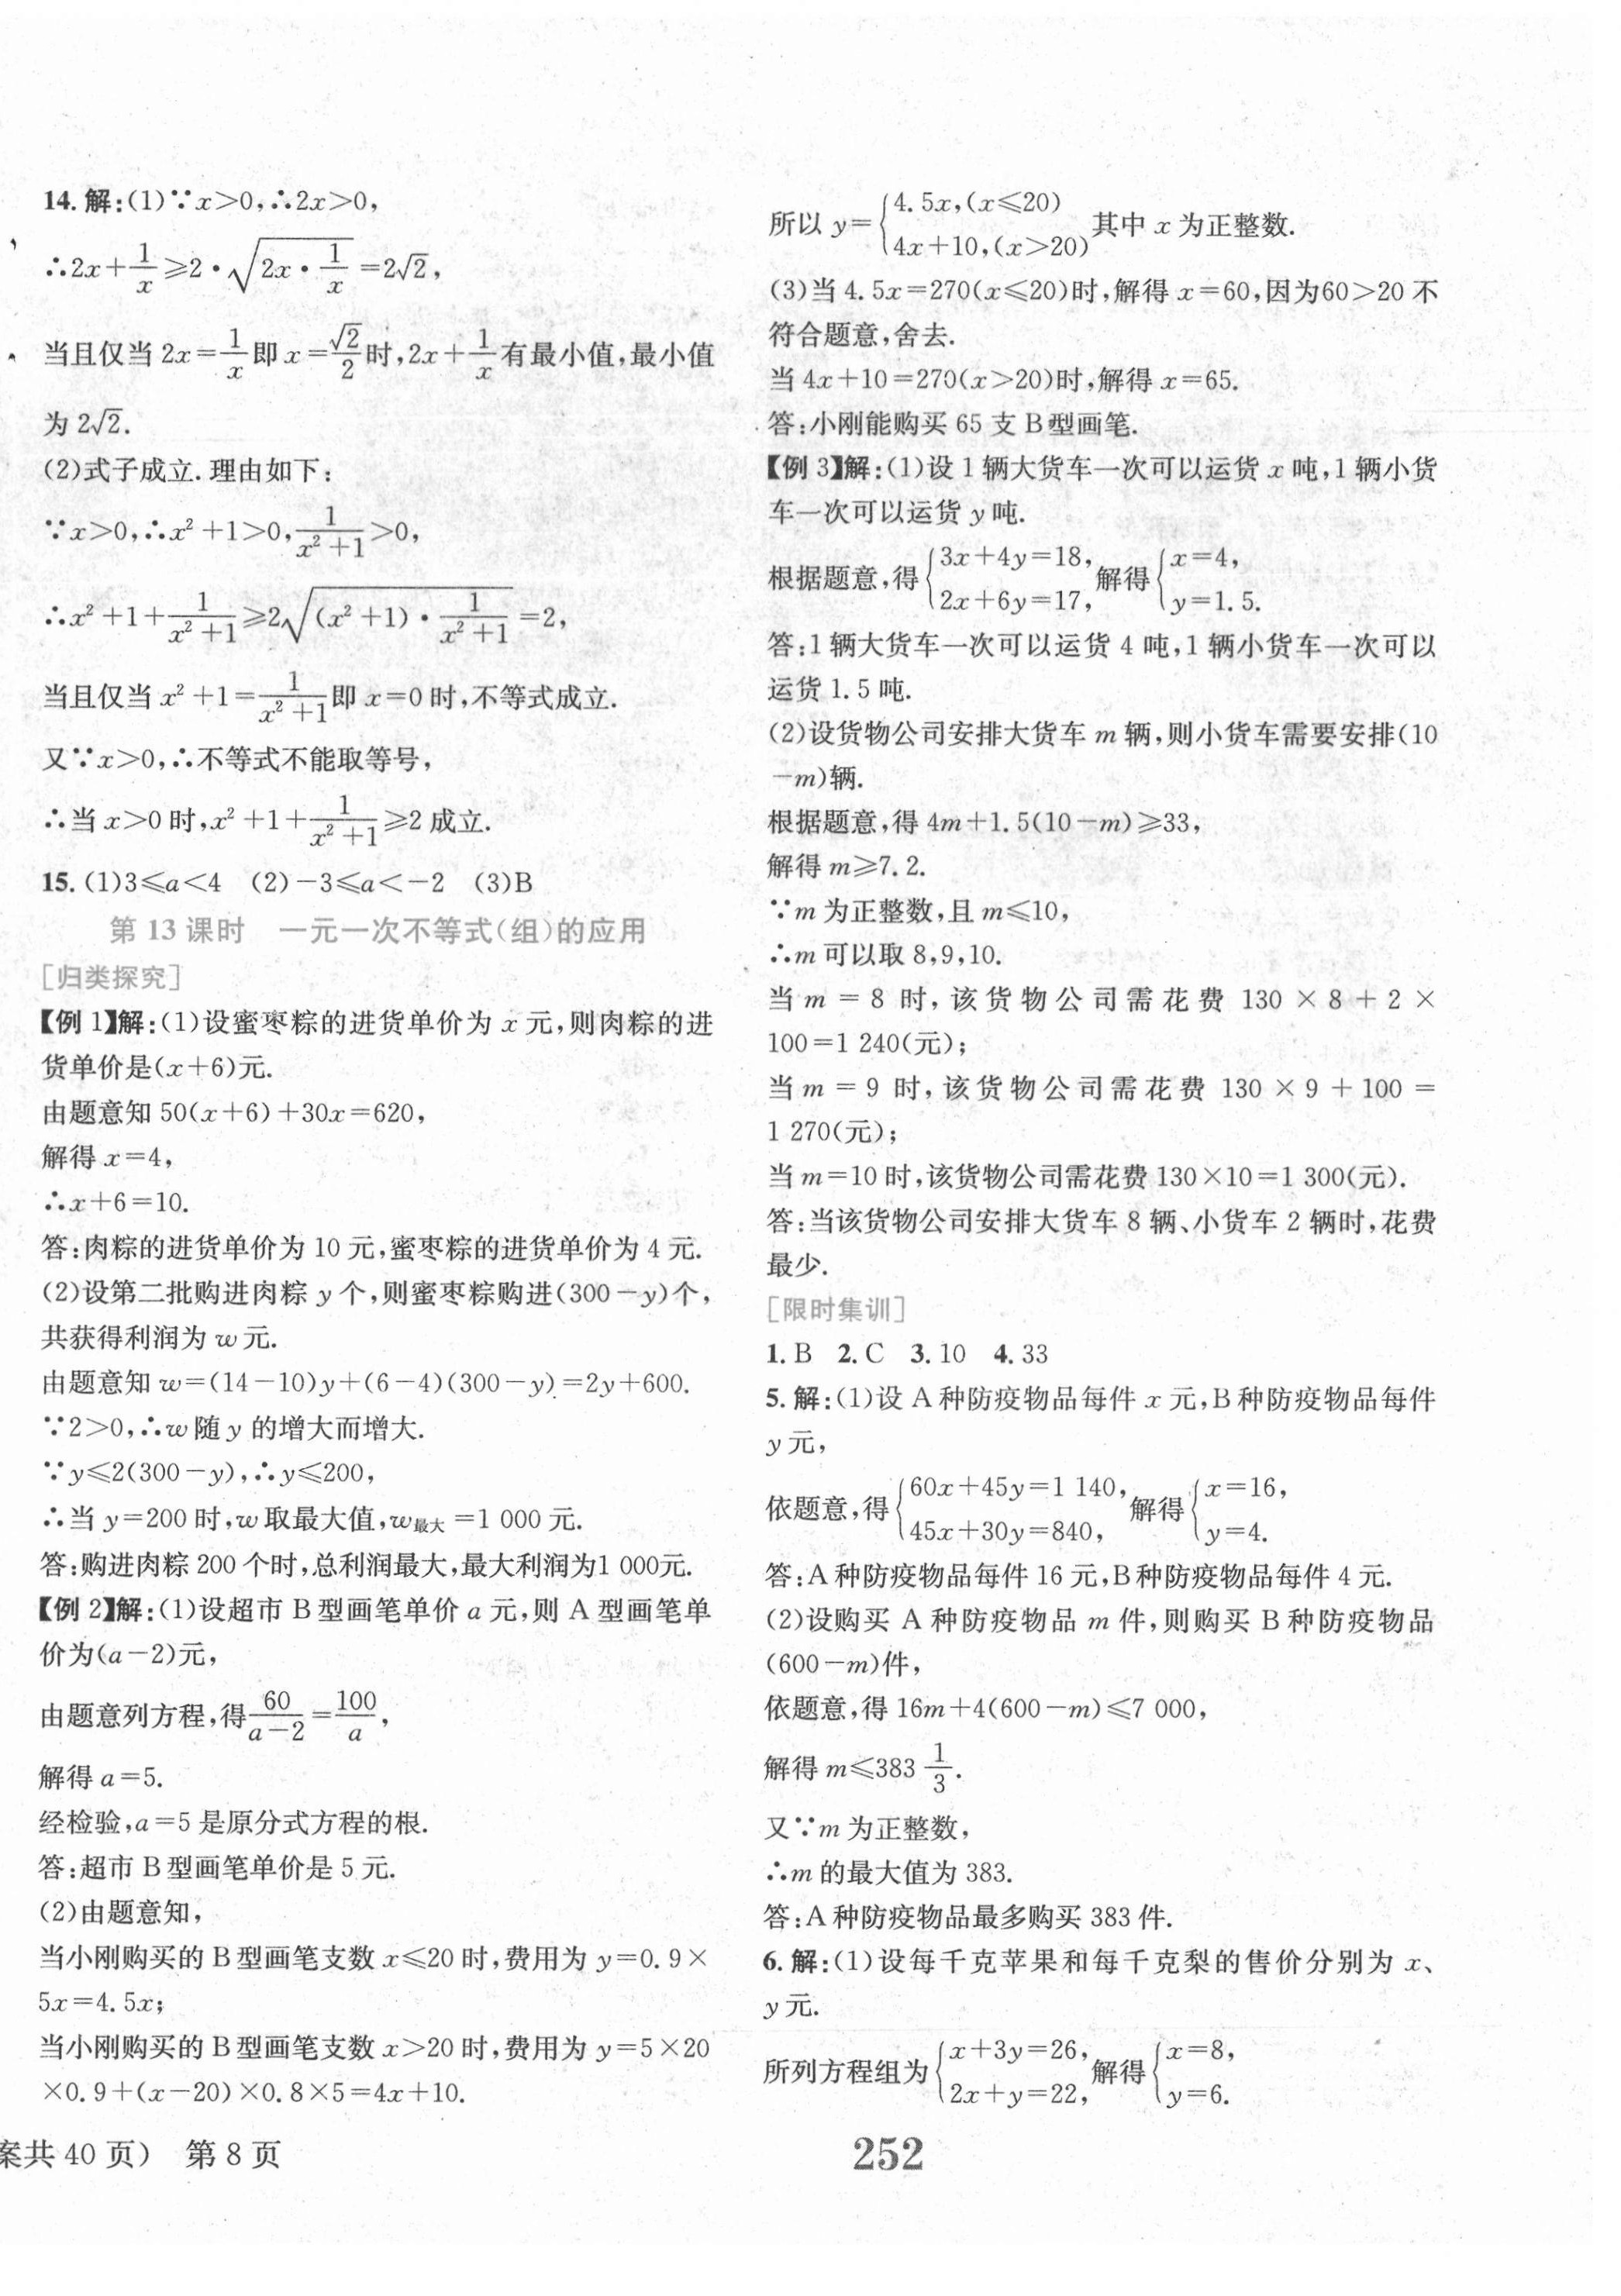 14.解:(1)∵x>0,∴2x>0,
∴2x+1/x≥2·√(2x·1/x)=2√2,
当且仅当 2x=1/x即 x=√2/2时,2x+1/x有最小值,最小值
为 2√2.
(2)式子成立.理由如下:
∵x>0,∴x²+1>0,1/(x²+1)>0,
∴x²+1+1/(x²+1)≥2√((x²+1)·1/(x²+1))=2,
当且仅当 x²+1=1/(x²+1)即 x=0 时,不等式成立.
又∵x>0,∴不等式不能取等号,
∴当 x>0 时,x²+1+1/(x²+1)≥2 成立.
15.(1)3≤a<4 (2)-3≤a<-2 (3)B
第 13 课时 一元一次不等式(组)的应用
[归类探究]
【例 1】解:(1)设蜜枣粽的进货单价为 x 元,则肉粽的进
货单价是(x+6)元.
由题意知 50(x+6)+30x=620,
解得 x=4,
∴x+6=10.
答:肉粽的进货单价为 10 元,蜜枣粽的进货单价为 4 元.
(2)设第二批购进肉粽 y 个,则蜜枣粽购进(300-y)个,
共获得利润为 w 元.
由题意知 w=(14-10)y+(6-4)(300-y)=2y+600.
∵2>0,∴w 随 y 的增大而增大.
∵y≤2(300-y),∴y≤200,
∴当 y=200 时,w 取最大值,w最大=1 000 元.
答:购进肉粽 200 个时,总利润最大,最大利润为1 000元.
【例 2】解:(1)设超市 B 型画笔单价 a 元,则 A 型画笔单
价为(a-2)元,
由题意列方程,得60/(a-2)=100/a,
解得 a=5.
经检验,a=5 是原分式方程的根.
答:超市 B 型画笔单价是 5 元.
(2)由题意知,
当小刚购买的 B 型画笔支数 x≤20 时,费用为 y=0.9×
5x=4.5x;
当小刚购买的 B 型画笔支数 x>20 时,费用为 y=5×20
×0.9+(x-20)×0.8×5=4x+10.
所以 y={4.5x,(x≤20) 4x+10,(x>20) 其中 x 为正整数.
(3)当 4.5x=270(x≤20)时,解得 x=60,因为60>20 不
符合题意,舍去.
当 4x+10=270(x>20)时,解得 x=65.
答:小刚能购买 65 支 B 型画笔.
【例 3】解:(1)设 1 辆大货车一次可以运货 x 吨,1 辆小货
车一次可以运货 y 吨.
根据题意,得{3x+4y=18, 2x+6y=17, 解得{x=4, y=1.5.
答:1 辆大货车一次可以运货 4 吨,1 辆小货车一次可以
运货 1.5 吨.
(2)设货物公司安排大货车 m 辆,则小货车需要安排(10
-m)辆.
根据题意,得 4m+1.5(10-m)≥33,
解得 m≥7.2.
∵m 为正整数,且 m≤10,
∴m 可以取 8,9,10.
当 m = 8 时,该货物公司需花费 130 × 8 + 2 ×
100=1 240(元);
当 m = 9 时,该货物公司需花费 130 × 9 + 100 =
1 270(元);
当 m=10 时,该货物公司需花费 130×10=1 300(元).
答:当该货物公司安排大货车 8 辆、小货车 2 辆时,花费
最少.
[限时集训]
1.B 2.C 3.10 4.33
5.解:(1)设 A 种防疫物品每件 x 元,B 种防疫物品每件
y 元,
依题意,得{60x+45y=1 140, 45x+30y=840, 解得{x=16, y=4.
答:A 种防疫物品每件 16 元,B 种防疫物品每件 4 元.
(2)设购买 A 种防疫物品 m 件,则购买 B 种防疫物品
(600-m)件,
依题意,得 16m+4(600-m)≤7 000,
解得 m≤383 1/3.
又∵m 为正整数,
∴m 的最大值为 383.
答:A 种防疫物品最多购买 383 件.
6.解:(1)设每千克苹果和每千克梨的售价分别为 x、
y 元.
所列方程组为{x+3y=26, 2x+y=22, 解得{x=8, y=6.
案共 40 页) 第 8 页
252